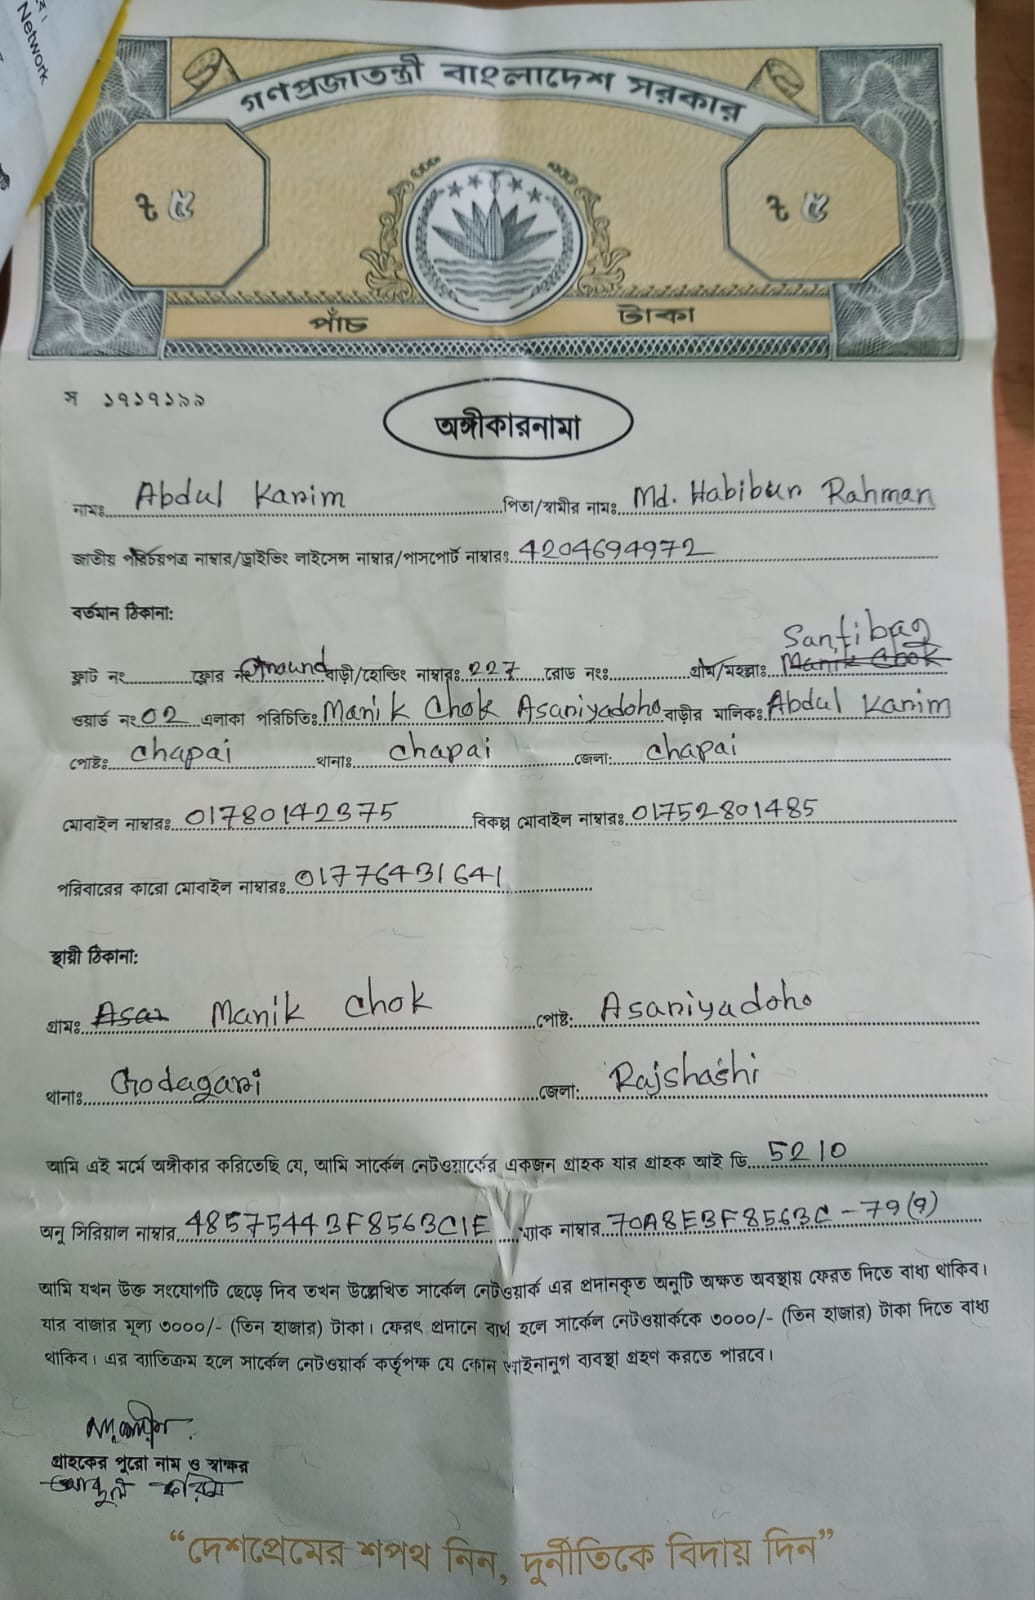 Network
গণপ্রজাতন্ত্রী বাংলাদেশ সরকার
৳ ৫ ৳ ৫
পাঁচ টাকা
স ১৭১৭১৯৯
অঙ্গীকারনামা
নামঃ Abdul Karim পিতা/স্বামীর নামঃ Md. Habibur Rahman
জাতীয় পরিচয়পত্র নাম্বার/ড্রাইভিং লাইসেন্স নাম্বার/পাসপোর্ট নাম্বারঃ 4204694972
বর্তমান ঠিকানা:
Santibag
ফ্লাট নং ফ্লোর নং Ground বাড়ী/হোল্ডিং নাম্বারঃ 227 রোড নংঃ গ্রাম/মহল্লাঃ Manik Chok
ওয়ার্ড নং 02 এলাকা পরিচিতিঃ Manik Chok Asariyadoho বাড়ীর মালিকঃ Abdul Karim
পোষ্টঃ Chapai থানাঃ Chapai জেলা: Chapai
মোবাইল নাম্বারঃ 01780142375 বিকল্প মোবাইল নাম্বারঃ 01752801485
পরিবারের কারো মোবাইল নাম্বারঃ 01776431641
স্থায়ী ঠিকানা:
গ্রামঃ Asar Manik Chok পোষ্ট: Asariyadoho
থানাঃ Godagari জেলা: Rajshashi
আমি এই মর্মে অঙ্গীকার করিতেছি যে, আমি সার্কেল নেটওয়ার্কের একজন গ্রাহক যার গ্রাহক আই ডি 5210
অনু সিরিয়াল নাম্বার 48575443F8563C1E ম্যাক নাম্বার 70A8E3F8563C - 79(9)
আমি যখন উক্ত সংযোগটি ছেড়ে দিব তখন উল্লেখিত সার্কেল নেটওয়ার্ক এর প্রদানকৃত অনুটি অক্ষত অবস্থায় ফেরত দিতে বাধ্য থাকিব।
যার বাজার মূল্য ৩০০০/- (তিন হাজার) টাকা। ফেরৎ প্রদানে ব্যর্থ হলে সার্কেল নেটওয়ার্ককে ৩০০০/- (তিন হাজার) টাকা দিতে বাধ্য
থাকিব। এর ব্যতিক্রম হলে সার্কেল নেটওয়ার্ক কর্তৃপক্ষ যে কোন আইনানুগ ব্যবস্থা গ্রহণ করতে পারবে।
গ্রাহকের পুরো নাম ও স্বাক্ষর
আব্দুল করিম
“দেশপ্রেমের শপথ নিন, দুর্নীতিকে বিদায় দিন”